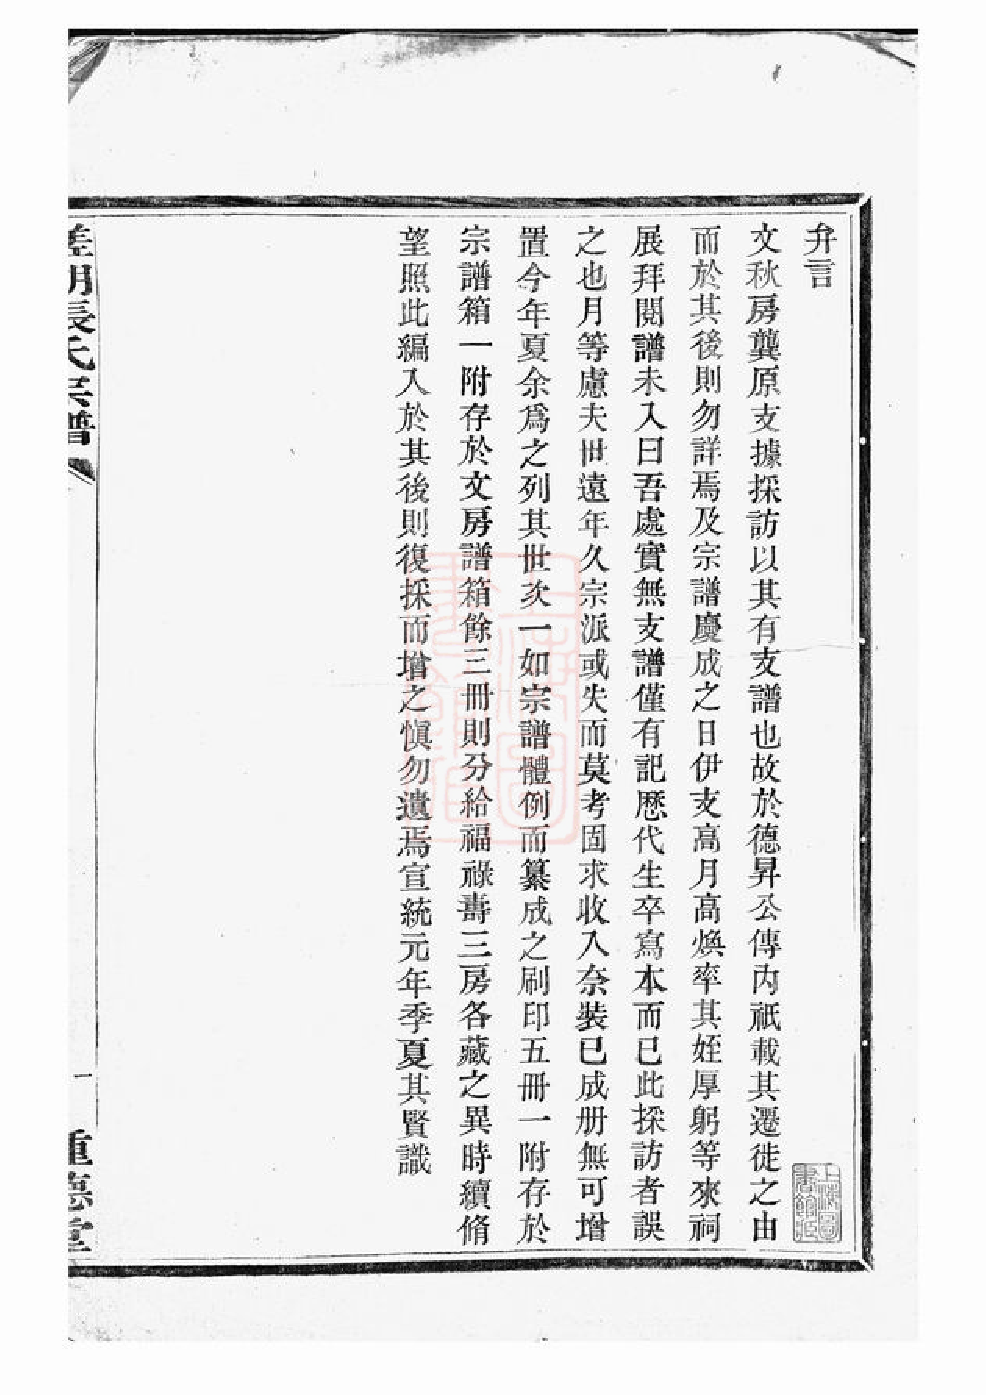 弁言
文秋房龔原支據採訪以其有支譜也故於德昇公傳內祇載其遷徙之由
而於其後則勿詳焉及宗譜慶成之日伊支高月高煥率其姪厚躬等來祠
展拜閱譜未入曰吾處實無支譜僅有記歷代生卒寫本而已此採訪者誤
之也月等慮夫世遠年久宗派或失而莫考固求收入奈裝已成册無可增
置今年夏余爲之列其世次一如宗譜體例而纂成之刷印五冊一附存於
宗譜箱一附存於文房譜箱餘三冊則分給福祿壽三房各藏之異時續脩
望照此編入於其後則復採而增之愼勿遺焉宣統元年季夏其賢識
差湖張氏宗譜
一
重德堂
上海圖書館藏